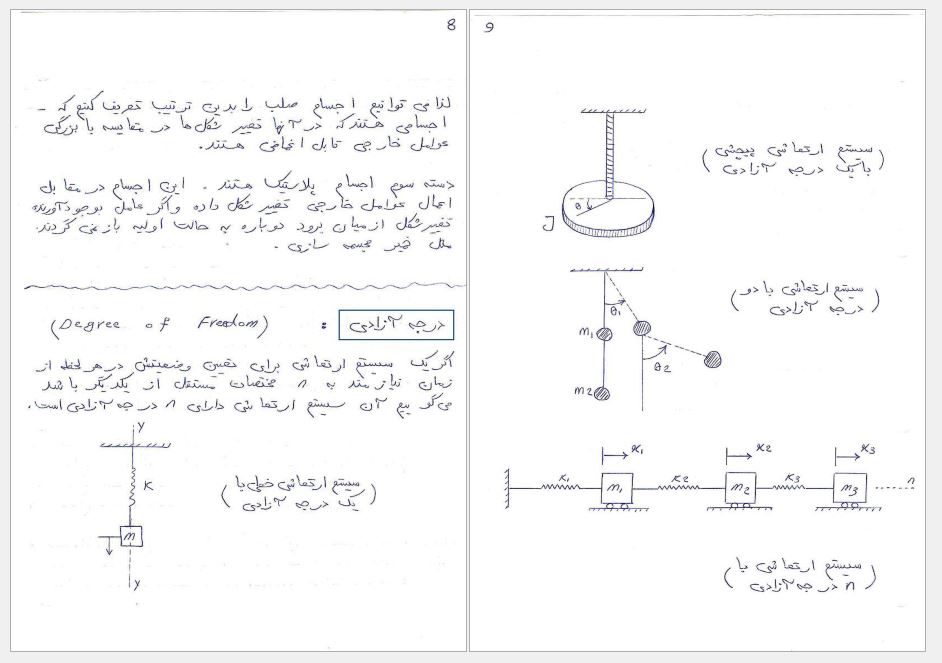 8
لذا می توانیم اجسام صلب را بدین ترتیب تعریف کنیم که -
اجسامی هستند که در آنها تغییر شکل ها در مقایسه با بزرگی
عوامل خارجی قابل اغماض هستند.
دسته سوم اجسام پلاستیک هستند. این اجسام در مقابل
اعمال عوامل خارجی تغییر شکل داده و اگر عامل بوجود آورنده
تغییر شکل از میان برود دوباره به حالت اولیه باز نمی گردند.
مثل خمیر مجسمه سازی.
درجه آزادی : (Degree of Freedom)
اگر یک سیستم ارتعاشی برای تعیین وضعیتش در هر لحظه از
زمان نیازمند به n مختصات مستقل از یکدیگر باشد
می گوییم آن سیستم ارتعاشی دارای n درجه آزادی است.
y
K
m
y
(سیستم ارتعاشی خطی با
یک درجه آزادی)
9
(سیستم ارتعاشی پیچشی
با یک درجه آزادی)
θ
J
(سیستم ارتعاشی با دو
درجه آزادی)
θ1
m1
θ2
m2
x1 x2 x3
K1 m1 K2 m2 K3 m3 n
(سیستم ارتعاشی با
n درجه آزادی)